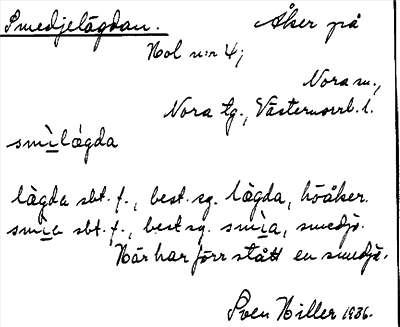 Smedjelägdan. Åker på
Hol n:r 4;
Nora sn.,
Nora tg., Västernorrl. l.
smìlàgda
lägda sbt. f., best. sg. lägda, höåker.
smìa sbt. f., best sg. smìa, smedja.
Här har förr stått en smedja.
Sven Hiller 1936.